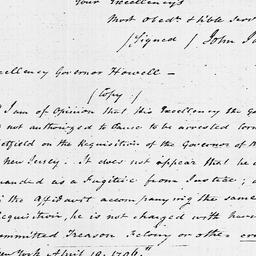 Your Excellency's
Most Obedt. & hble Serv
(Signed) John Ja
cellency Governor Howell —
(Copy)
I am of Opinion that His Excellency the Go
not authorized to Cause to be arrested
field on the Requisition of the Governor of
New Jersey. It does not appear that he
anded as a Fugitive from Justice;
the Affidavit accompanying the same
equisition, he is not charged with havi
ommitted Treason Felony or other
ew York April 19. 1796."